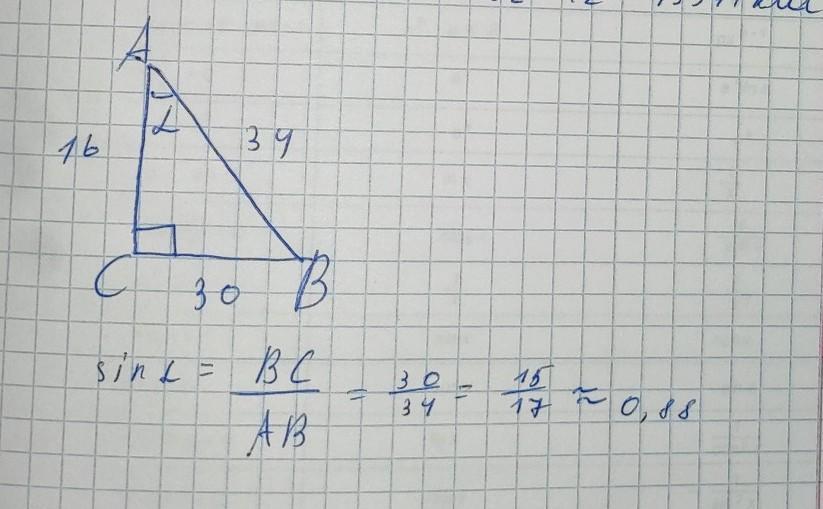 A
α
16
34
C
30
B
sin α = BC/AB = 30/34 = 15/17 ≈ 0,88